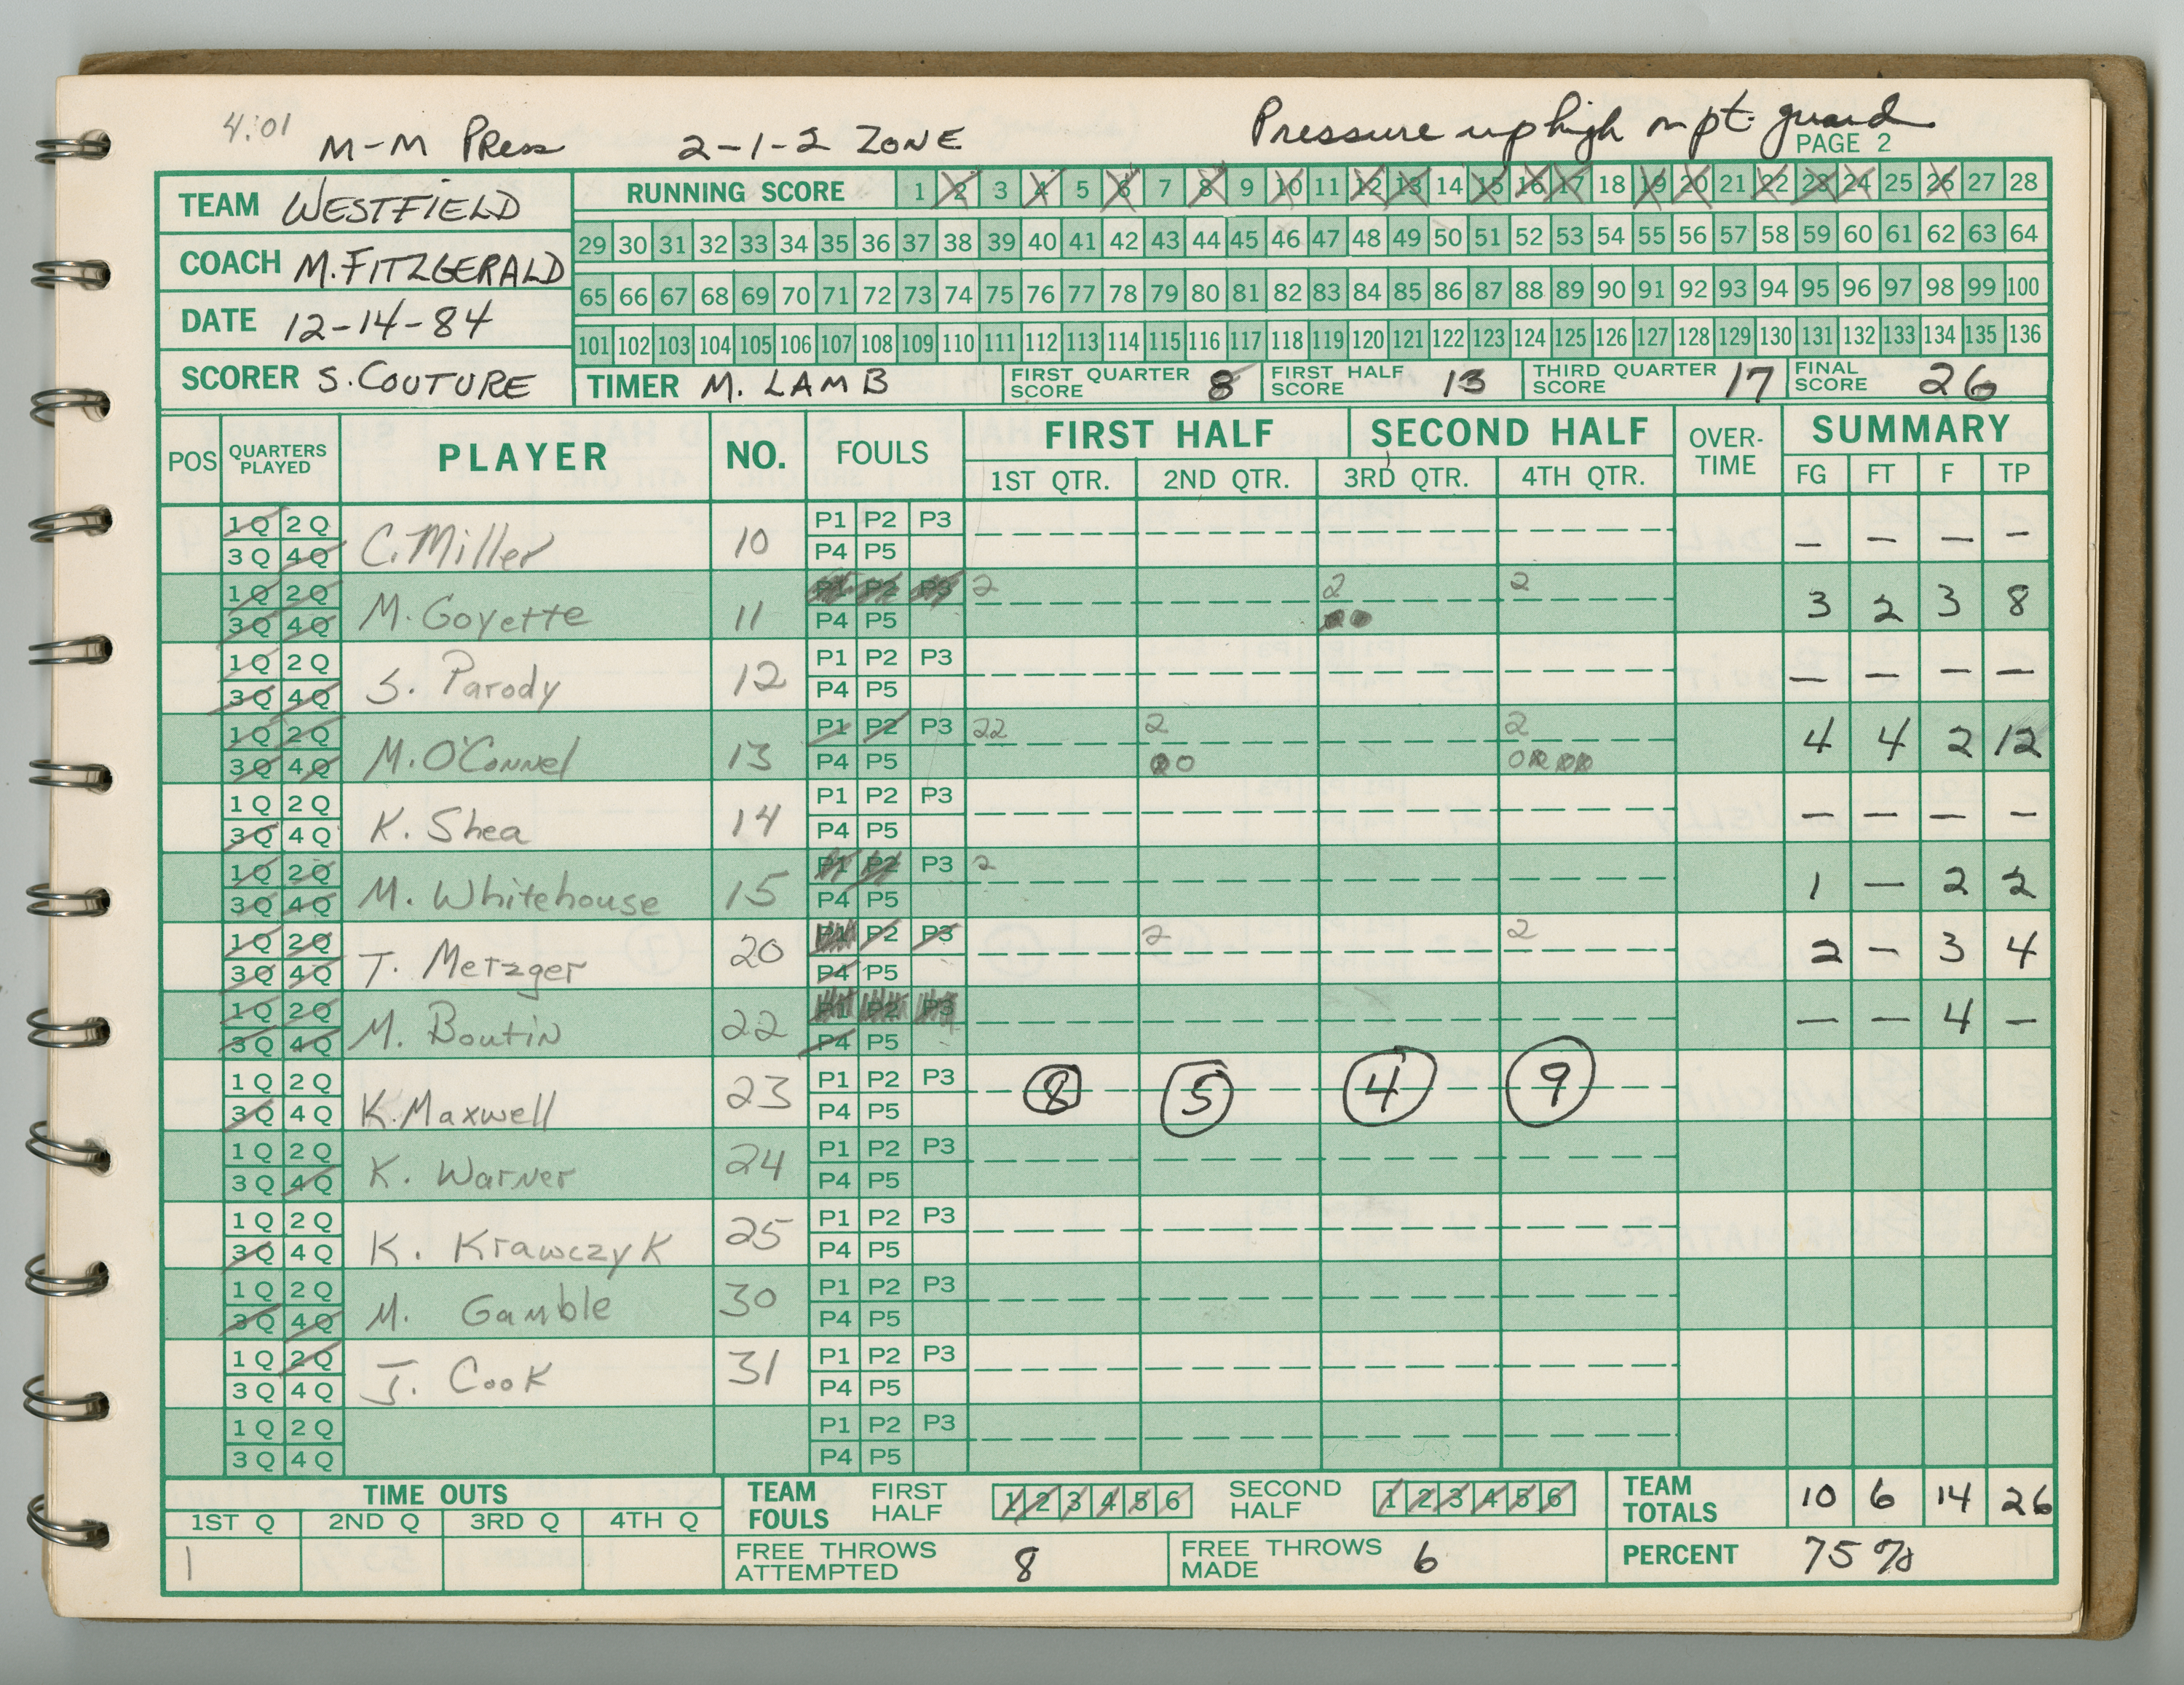 4:01
M-M Press 2-1-2 ZONE Pressure up high on pt. guard
PAGE 2
TEAM WESTFIELD
COACH M. FITZGERALD
DATE 12-14-84
SCORER S. COUTURE
RUNNING SCORE 1 2 3 4 5 6 7 8 9 10 11 12 13 14 15 16 17 18 19 20 21 22 23 24 25 26 27 28
29 30 31 32 33 34 35 36 37 38 39 40 41 42 43 44 45 46 47 48 49 50 51 52 53 54 55 56 57 58 59 60 61 62 63 64
65 66 67 68 69 70 71 72 73 74 75 76 77 78 79 80 81 82 83 84 85 86 87 88 89 90 91 92 93 94 95 96 97 98 99 100
101 102 103 104 105 106 107 108 109 110 111 112 113 114 115 116 117 118 119 120 121 122 123 124 125 126 127 128 129 130 131 132 133 134 135 136
TIMER M. LAMB FIRST QUARTER SCORE 8 FIRST HALF SCORE 13 THIRD QUARTER SCORE 17 FINAL SCORE 26
POS QUARTERS PLAYED PLAYER NO. FOULS FIRST HALF SECOND HALF OVER-TIME SUMMARY
1ST QTR. 2ND QTR. 3RD QTR. 4TH QTR. FG FT F TP
1Q 2Q P1 P2 P3
3Q 4Q C. Miller 10 P4 P5 — — — —
1Q 2Q P1 P2 P3 2 2 2
3Q 4Q M. Goyette 11 P4 P5 3 2 3 8
1Q 2Q P1 P2 P3
3Q 4Q S. Parody 12 P4 P5 — — — —
1Q 2Q P1 P2 P3 22 2 2
3Q 4Q M. O'Connel 13 P4 P5 4 4 2 12
1Q 2Q P1 P2 P3
3Q 4Q K. Shea 14 P4 P5 — — — —
1Q 2Q P1 P2 P3 2
3Q 4Q M. Whitehouse 15 P4 P5 1 — 2 2
1Q 2Q P1 P2 P3 2 2
3Q 4Q T. Metzger 20 P4 P5 2 — 3 4
1Q 2Q P1 P2 P3
3Q 4Q M. Boutin 22 P4 P5 — — 4 —
1Q 2Q P1 P2 P3 8 5 4 9
3Q 4Q K. Maxwell 23 P4 P5
1Q 2Q P1 P2 P3
3Q 4Q K. Warner 24 P4 P5
1Q 2Q P1 P2 P3
3Q 4Q K. Krawczyk 25 P4 P5
1Q 2Q P1 P2 P3
3Q 4Q M. Gamble 30 P4 P5
1Q 2Q P1 P2 P3
3Q 4Q J. Cook 31 P4 P5
1Q 2Q P1 P2 P3
3Q 4Q P4 P5
TIME OUTS
1ST Q 2ND Q 3RD Q 4TH Q
1
TEAM FOULS FIRST HALF 1 2 3 4 5 6 SECOND HALF 1 2 3 4 5 6
TEAM TOTALS 10 6 14 26
FREE THROWS ATTEMPTED 8 FREE THROWS MADE 6 PERCENT 75%